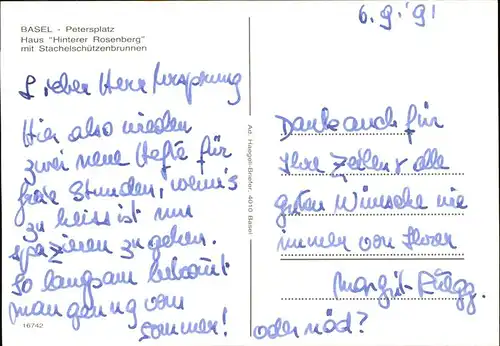 BASEL - Petersplatz
Haus "Hinterer Rosenberg"
mit Stachelschützenbrunnen
6.9.'91
Lieber Herr Ursprung
Hier also wieder
zwei neue Hefte für
freie Stunden, wenn's
zu heiss ist um
spazieren zu gehen.
So langsam bekommt
man genug vom
Sommer!
oder nöd?
Danke auch für
Ihre Zeilen & alle
guten Wünsche wie
immer von Ihrer
Margrit Rüegg.
Art. Haegeli-Briefer, 4010 Basel
16742